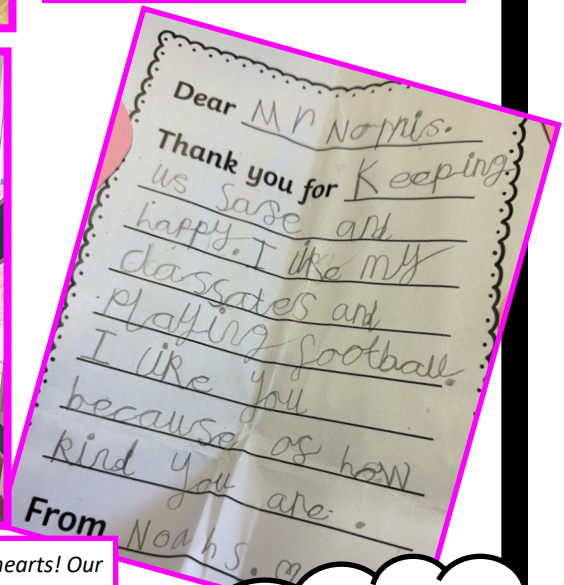 Dear Mr Norris.
Thank you for Keeping
us safe and
happy. I like my
classates and
Playing football.
I like you
because of how
kind you are.
From Noah S.
hearts! Our